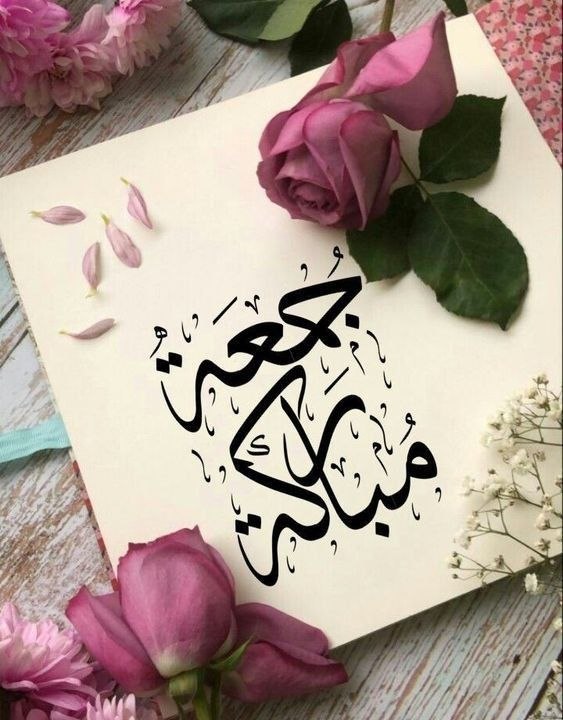 جُمعَةٌ
مُباركَة